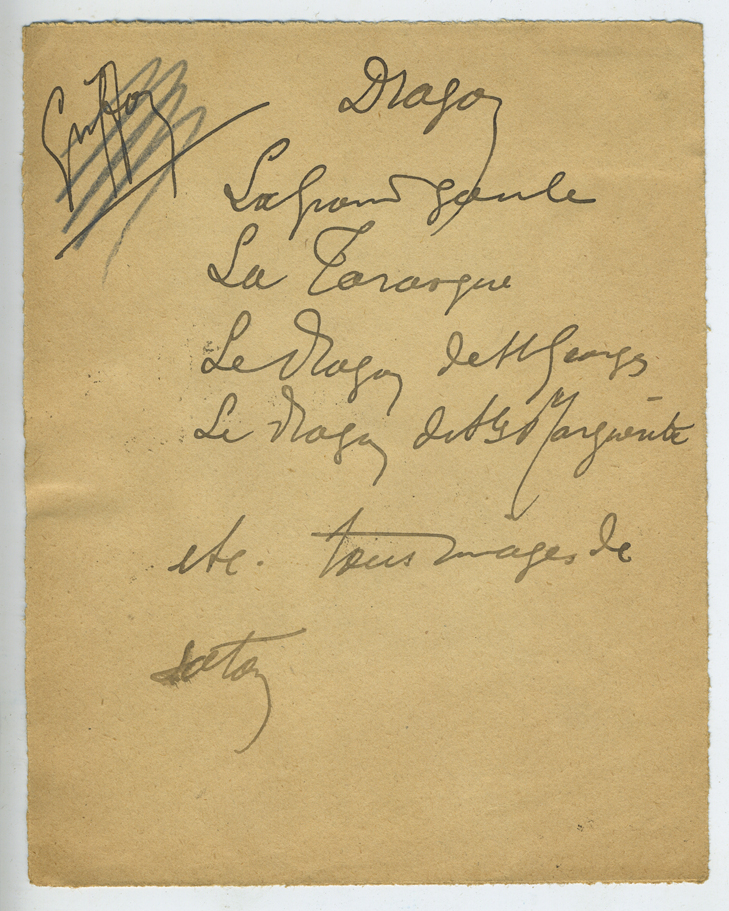 Griffon
Dragon
La grand gueule
La Tarasque
Le dragon de St Georges
Le dragon de Ste Marguerite
etc. tous images de
satan